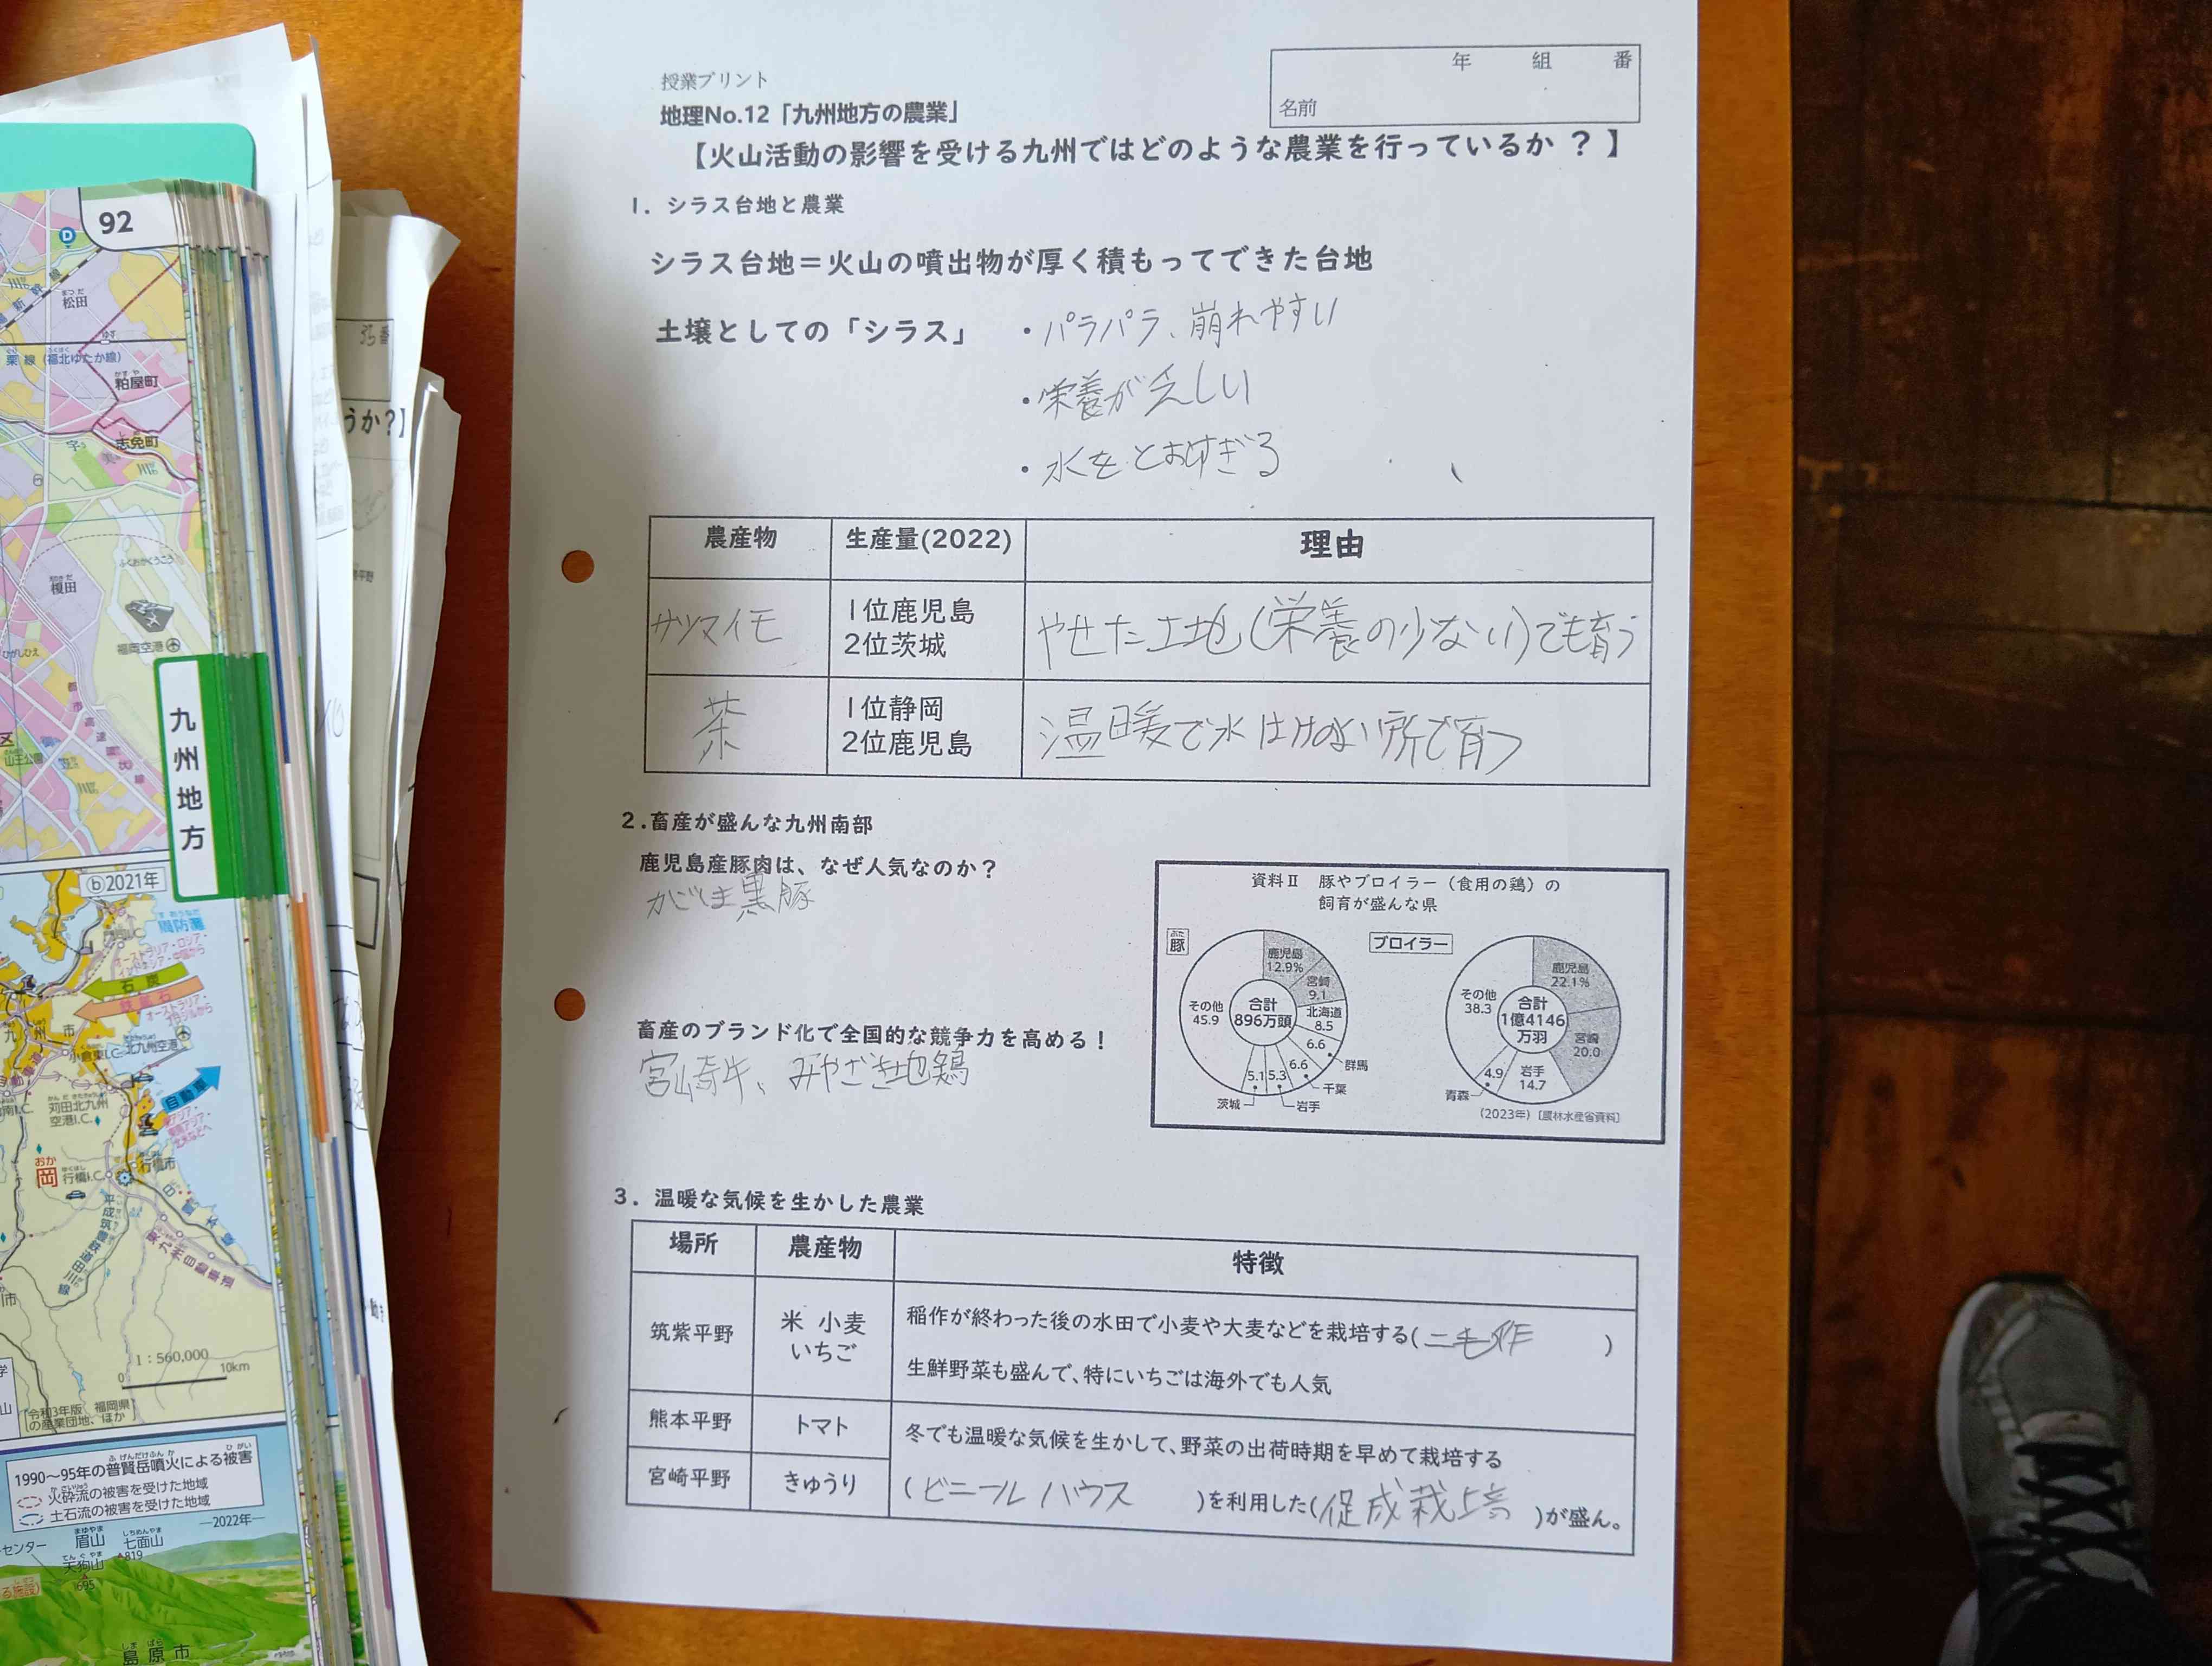 授業プリント
年 組 番
名前
地理No.12「九州地方の農業」
【火山活動の影響を受ける九州ではどのような農業を行っているか？】
1. シラス台地と農業
シラス台地＝火山の噴出物が厚く積もってできた台地
土壌としての「シラス」 ・パラパラ、崩れやすい
・栄養が乏しい
・水をとおすぎる
農産物 生産量(2022) 理由
サツマイモ 1位鹿児島 2位茨城 やせた土地(栄養の少ない)でも育つ
茶 1位静岡 2位鹿児島 温暖で水はけのよい所で育つ
2.畜産が盛んな九州南部
鹿児島産豚肉は、なぜ人気なのか？
かごしま黒豚
畜産のブランド化で全国的な競争力を高める！
宮崎牛、みやざき地鶏
資料Ⅱ 豚やブロイラー（食用の鶏）の
飼育が盛んな県
ぶた
豚
合計
896万頭
鹿児島
12.9%
宮崎
9.1
北海道
8.5
6.6
群馬
6.6
千葉
5.3
岩手
5.1
茨城
その他
45.9
ブロイラー
合計
1億4146
万羽
鹿児島
22.1%
宮崎
20.0
岩手
14.7
4.9
青森
その他
38.3
(2023年)〔農林水産省資料〕
3. 温暖な気候を生かした農業
場所 農産物 特徴
筑紫平野 米 小麦 いちご
稲作が終わった後の水田で小麦や大麦などを栽培する(二毛作)
生鮮野菜も盛んで、特にいちごは海外でも人気
熊本平野 トマト
宮崎平野 きゅうり
冬でも温暖な気候を生かして、野菜の出荷時期を早めて栽培する
(ビニールハウス)を利用した(促成栽培)が盛ん。
92
松田
粕屋町
志免町
榎田
ふくおかくうこう
福岡空港
山王公園
九州地方
うか？】
ⓑ2021年
周防灘
石炭
鉄鉱石
北九州空港
自動車
苅田北九州
空港I.C.
行橋I.C.
行橋市
東九州自動車道
1：560,000
0 10km
令和3年版 福岡県
の産業団地、ほか
1990～95年の普賢岳噴火による被害
火砕流の被害を受けた地域
土石流の被害を受けた地域
—2022年—
まゆやま
眉山
しちめんやま
七面山
819
てんぐやま
天狗山
695
センター
しまばら
島原市